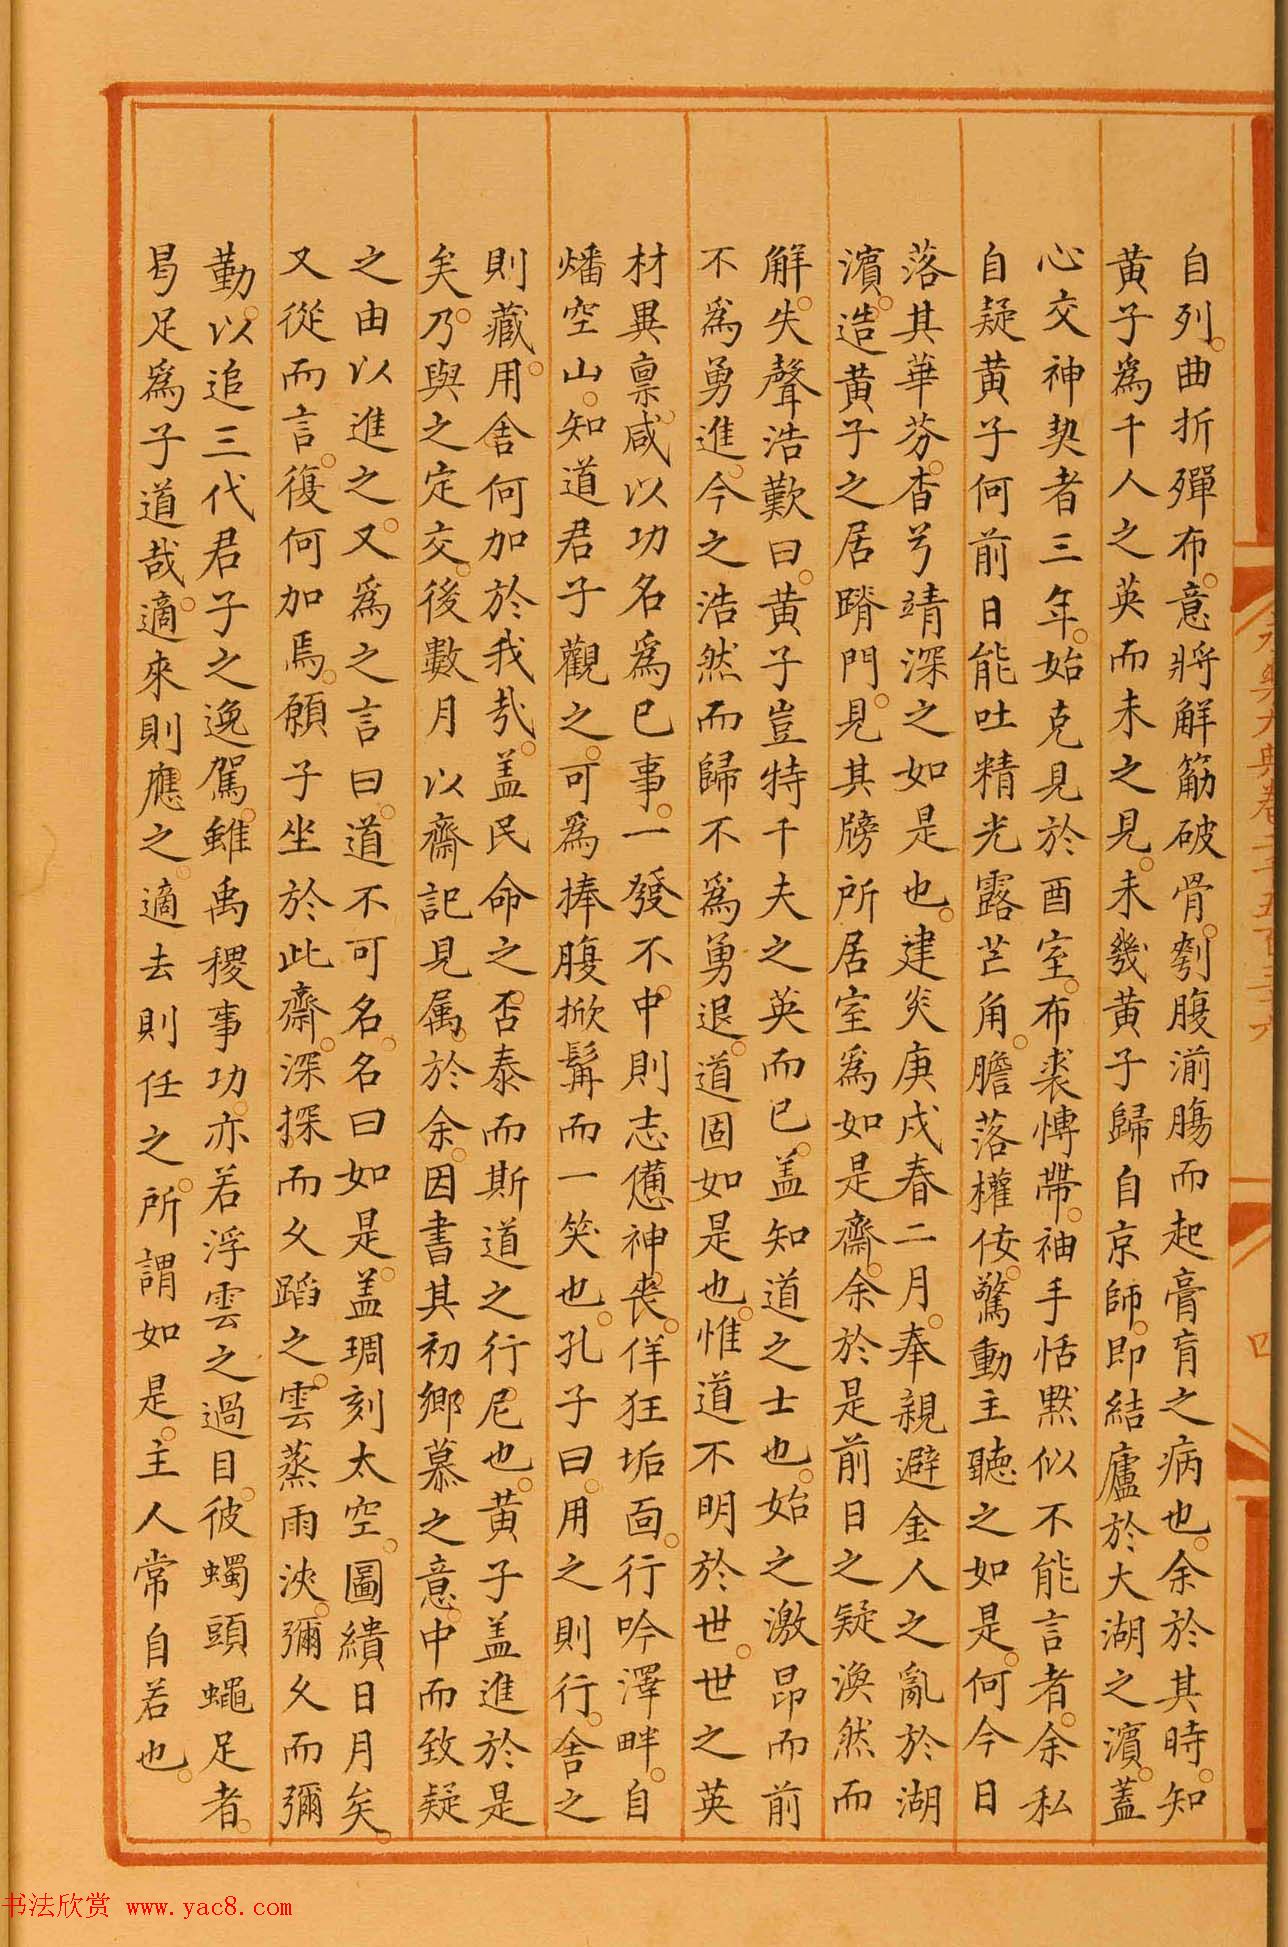 自列。曲折殫布。意將解筋破骨。刳腹湔腸而起膏肓之病也。余於其時。知
黄子爲千人之英而未之見。未幾黄子歸自京師。即結廬於大湖之濵。蓋
心交神契者三年。始克見於酉室。布裘愽帶。袖手恬默似不能言者。余私
自疑黄子何前日能吐精光露芒角。膽落權倿。驚動主聽之如是。何今日
落其華芬。杳兮靖深之如是也。建炎庚戌春二月。奉親避金人之亂於湖
濵。造黄子之居蹐門。見其牓所居室爲如是齋。余於是前日之疑渙然而
解。失聲浩歎曰。黄子豈特千夫之英而已。盖知道之士也。始之激昂而前
不爲勇進。今之浩然而歸不爲勇退。道固如是也。惟道不明於世。世之英
材異禀。咸以功名爲已事。一發不中。則志憊神喪。佯狂垢面。行吟澤畔。自
燔空山。知道君子觀之。可爲捧腹掀髯而一笑也。孔子曰。用之則行。舎之
則藏。用舎何加於我哉。盖民命之否泰而斯道之行尼也。黄子盖進於是
矣。乃與之定交。後數月以齋記見属。於余。因書其初鄉慕之意。中而致疑
之由以進之。又爲之言曰。道不可名。名曰如是。盖琱刻太空。圖繢日月矣。
又從而言。復何加焉。願子坐於此齋。深探而乆蹈之。雲蒸雨浹。彌乆而彌
勤。以追三代君子之逸駕。雖禹稷事功。亦若浮雲之過目。彼蠋頭蠅足者。
曷足爲子道哉。適來則應之。適去則任之。所謂如是。主人常自若也。
四
书法欣赏 www.yac8.com